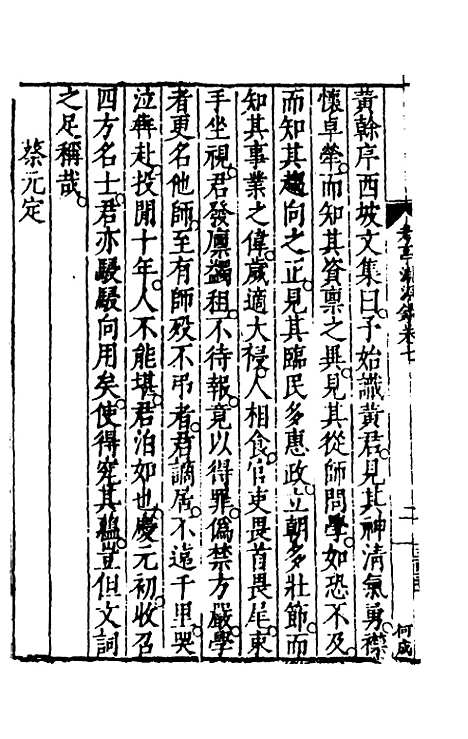 黃榦序西坡文集曰予始識黃君見其神清氣勇襟
懷卓犖而知其資稟之異見其從師問學如恐不及
而知其趨向之正見其臨民多惠政立朝多壯節而
知其事業之偉歲適大祲人相食官吏畏首畏尾東
手坐視君發廩蠲租不待報竟以得罪僞禁方嚴學
者更名他師至有師歿不弔者君謫居不遠千里哭
泣犇赴投閒十年人不能堪君泊如也慶元初收召
四方名士君亦駸駸向用矣使得究其蘊豈但文詞
之足稱哉
蔡元定
考亭淵源錄卷七
二
何成